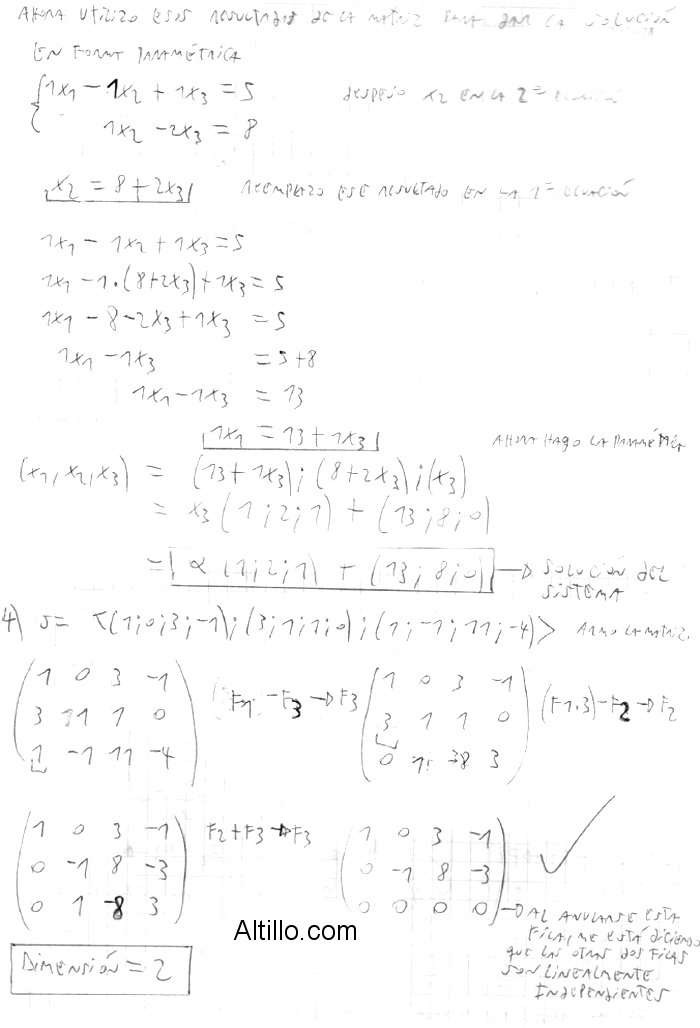 AHORA UTILIZO ESOS RESULTADOS DE LA MATRIZ PARA DAR LA SOLUCIÓN
EN FORMA PARAMÉTRICA
1x1 - 1x2 + 1x3 = 5 DESPEJO x2 EN LA 2º ECUACIÓN
1x2 - 2x3 = 8
x2 = 8 + 2x3 REEMPLAZO ESE RESULTADO EN LA 1º ECUACIÓN
1x1 - 1x2 + 1x3 = 5
1x1 - 1.(8+2x3) + 1x3 = 5
1x1 - 8 - 2x3 + 1x3 = 5
1x1 - 1x3 = 5+8
1x1 - 1x3 = 13
1x1 = 13 + 1x3 AHORA HAGO LA PARAMÉTRICA
(x1, x2, x3) = (13 + 1x3); (8 + 2x3); (x3)
= x3 (1;2;1) + (13;8;0)
= α (1;2;1) + (13;8;0) → SOLUCIÓN DEL
SISTEMA
4) S = <(1;0;3;-1);(3;1;1;0);(1;-1;11;-4)> ARMO LA MATRIZ.
1 0 3 -1 1 0 3 -1
3 1 1 0 F1 - F3 → F3 3 1 1 0 (F1.3) - F2 → F2
1 -1 11 -4 0 1 -8 3
1 0 3 -1 F2 + F3 → F3 1 0 3 -1
0 -1 8 -3 0 -1 8 -3
0 1 -8 3 0 0 0 0 → AL ANULARSE ESTA
FILA, ME ESTÁ DICIENDO
QUE LAS OTRAS DOS FILAS
SON LINEALMENTE
INDEPENDIENTES
Altillo.com
DIMENSIÓN = 2